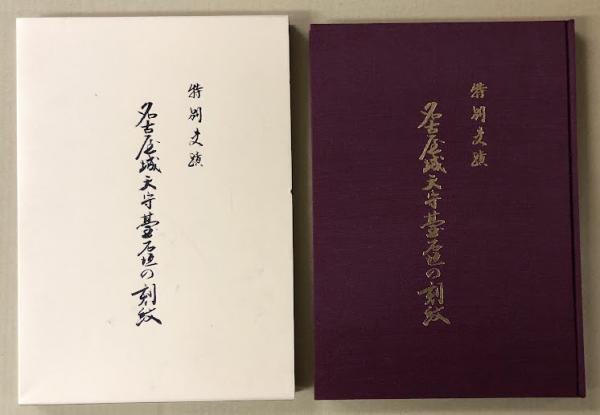 特別史蹟
名古屋城天守臺石垣の刻紋
特別史蹟
名古屋城天守臺石垣の刻紋